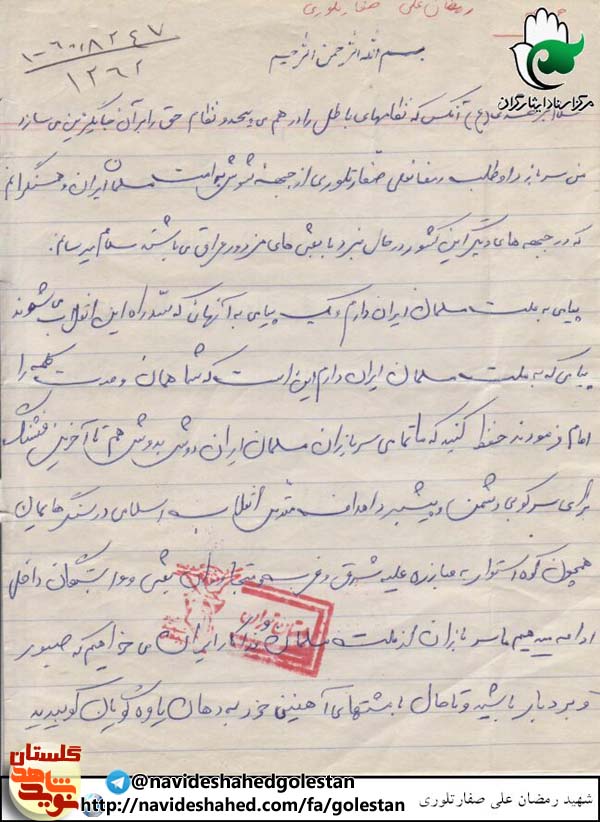 رمضان علی صفارتلوری
۱-۶۰،۸۲۴۷
۱۲۶۲
بسم الله الرحمن الرحیم
مرکز اسناد ایثارگران
آنکس که نظامهای باطل را در هم می‌پیچد و نظام حق را بر آن جایگزین می سازد
من سرباز داوطلب رمضانعلی صفارتلوری از جبهه شوش به امت مسلمان ایران و همسنگرانم
که در جبهه های دیگر این کشور در حال نبرد با بعثی های مزدور عراق می باشند سلام میرسانم.
پیامی به ملت مسلمان ایران دارم و یک پیامی به آنهائی که سد راه این انقلاب می شوند
پیامی که به ملت مسلمان ایران دارم این است که شما همان وحدت کلمه را
امام فرمودند حفظ کنید که ما تمامی سربازان مسلمان ایران دوش بدوش هم تا آخرین فشنگ
برای سرکوبی دشمن و پیشبرد اهداف مقدس انقلاب اسلامی در سنگرهایمان
همچون کوه استوار به مبارزه علیه شرق و غرب و بعثی و وابستگان داخلی
ادامه میدهیم ما سربازان از ملت مسلمان ایران می خواهیم که صبور
و بردبار باشید و تا حال با مشتهای آهنینی خود به دهان یاوه گویان کوبیدید
گلستان
نوید شاهد
@navideshahedgolestan
http://navideshahed.com/fa/golestan
شهید رمضان علی صفارتلوری